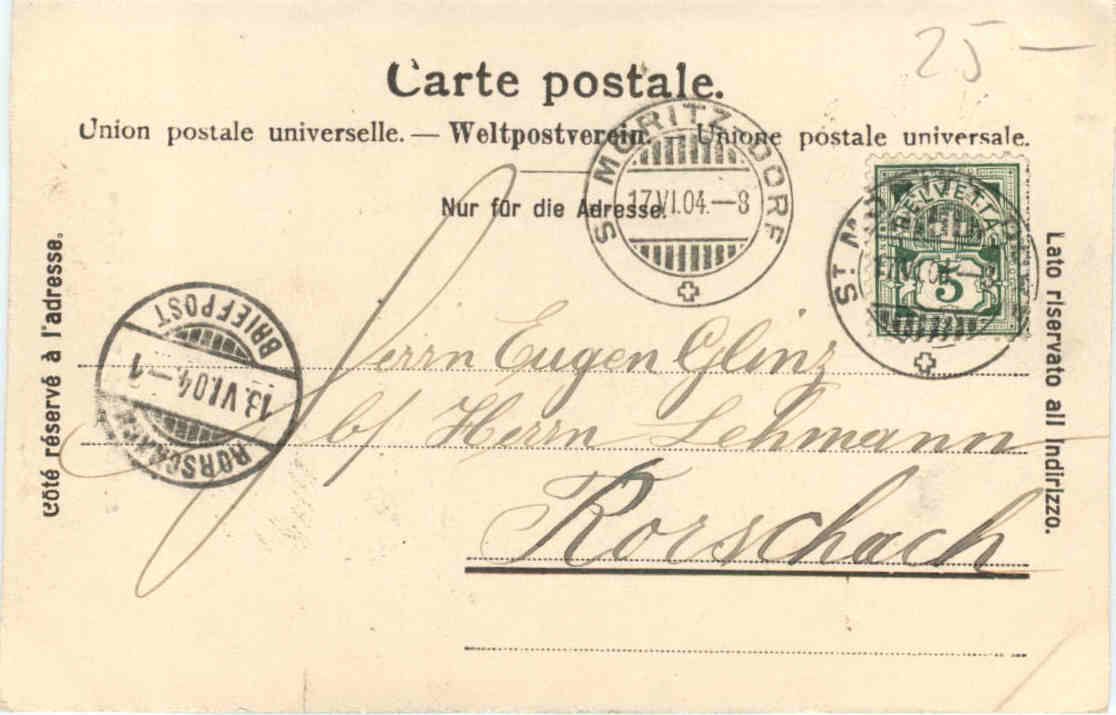 25 —
Carte postale.
Union postale universelle. — Weltpostverein. — Unione postale universale.
Nur für die Adresse.
Côté réservé à l'adresse.
Lato riservato all indirizzo.
ST MORITZ DORF
17.VI.04.—8
HELVETIA
5
ST M
BRIEFPOST
18.VI.04.—1
RORSCHACH
Herrn Eugen Glinz
b/ Herrn Lehmann
Rorschach